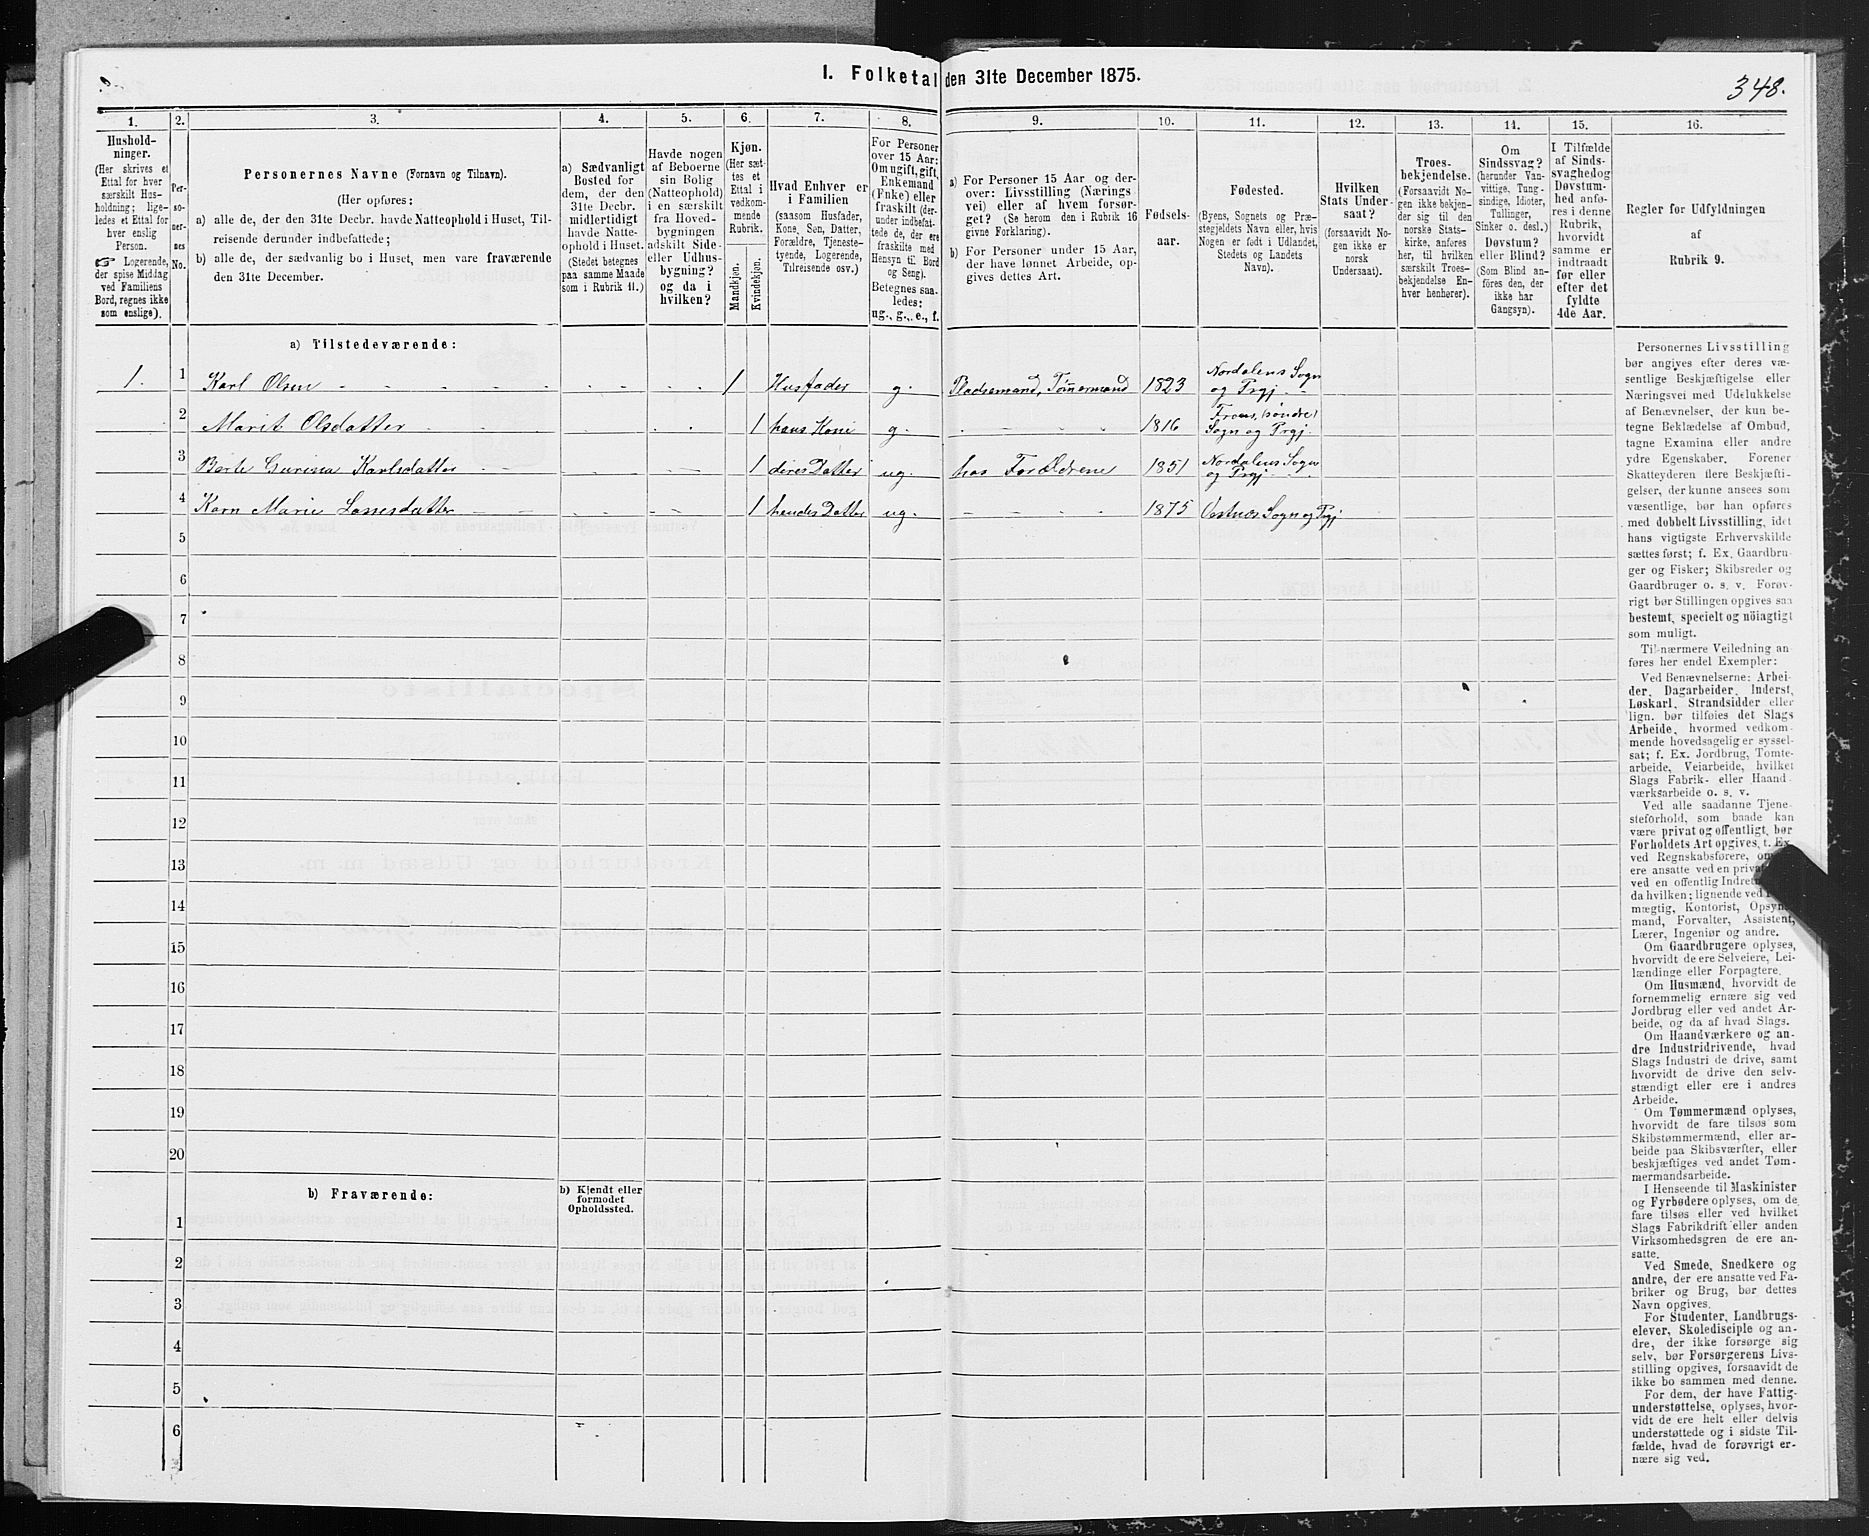 I. Folketal den 31te December 1875.
348.
1.
2.
3.
4.
5.
6.
7.
8.
9.
10.
11.
12.
13.
14.
15.
16.
Hushold-
ninger.
(Her skrives et
Ettal for hver
særskilt Hus-
holdning; lige-
ledes et Ettal for
hver enslig
Person.
Logerende,
der spise Middag
ved Familiens
Bord, regnes ikke
som enslige).
Per-
so-
ner-
nes
No.
Personernes Navne (Fornavn og Tilnavn).
(Her opføres:
a) alle de, der den 31te Decbr. havde Natteophold i Huset, Til-
reisende derunder indbefattede;
b) alle de, der sædvanlig bo i Huset, men vare fraværende
den 31te December.
a) Sædvanligt
Bosted for
dem, der den
31te Decbr.
midlertidigt
havde Natte-
ophold i Huset.
(Stedet betegnes
paa samme Maade
som i Rubrik 11.)
Havde nogen
af Beboerne
sin Bolig
(Natteophold)
i en særskilt
fra Hoved-
bygningen
adskilt Side-
eller Udhus-
bygning?
og da i
hvilken?
Kjøn.
(Her sæt-
tes et
Ettal i
vedkom-
mende
Rubrik.
Mandkjøn.
Kvindekjøn.
Hvad Enhver er
i Familien
(saasom Husfader,
Kone, Søn, Datter,
Forældre, Tjeneste-
tyende, Logerende,
Tilreisende osv.)
For Personer
over 15 Aar:
Om ugift, gift,
Enkemand
(Enke) eller
fraskilt (der-
under indbefat-
tede de, der ere
fraskilte med
Hensyn til Bord
og Seng).
Betegnes saa-
ledes:
ug., g., e., f.
a) For Personer 15 Aar og der-
over: Livsstilling (Nærings-
vei) eller af hvem forsør-
get? (Se herom den i Rubrik 16
givne Forklaring).
b) For Personer under 15 Aar,
der have lønnet Arbeide, op-
gives dettes Art.
Fødsels-
aar.
Fødested.
(Byens, Sognets og Præ-
stegjeldets Navn eller, hvis
Nogen er født i Udlandet,
Stedets og Landets
Navn).
Hvilken
Stats Under-
saat?
(forsaavidt No-
gen ikke er
norsk
Undersaat).
Troes-
bekjendelse.
(Forsaavidt No-
gen ikke bekjen-
der sig til den
norske Stats-
kirke, anføres
her, til hvilken
særskilt Troes-
bekjendelse En-
hver henhører).
Om
Sindssvag?
(herunder Van-
vittige, Tung-
sindige, Idioter,
Tullinger,
Sinker o. desl.)
Døvstum?
eller Blind?
(Som Blind an-
føres den, der
ikke har
Gangsyn).
I Tilfælde
af Sinds-
svaghed og
Døvstum-
hed anfø-
res i denne
Rubrik,
hvorvidt
samme er
indtraadt
før eller
efter det
fyldte
4de Aar.
Regler for Udfyldningen
af
Rubrik 9.
a) Tilstedeværende:
1. 1 Karl Olsen 1 Husfader g. Pladsemand, Tømmermand 1823 Nordalens Sogn
og Prgj.
2 Marit Olsdatter 1 hans Kone g. 1816 (søndre)
Sogn og Prgj.
3 Berte Gurina Karlsdatter 1 deres Datter ug. hos Forældrene 1851 Nordalens Sogn
og Prgj
4 Karn Marie Lassesdatter 1 hendes Datter ug. 1875 Vestnæs Sogn og Prgj
5
6
7
8
9
10
11
12
13
14
15
16
17
18
19
20
b) Fraværende:
b) Kjendt eller
formodet
Opholdssted.
1
2
3
4
5
6
Personernes Livsstilling
bør angives efter deres væ-
sentlige Beskjæftigelse eller
Næringsvei med Udelukkelse
af Benævnelser, der kun be-
tegne Beklædelse af Ombud,
tagne Examina eller andre
ydre Egenskaber. Forener
Skatteyderen flere Beskjæfti-
gelser, der kunne ansees som
væsentlige, bør han opføres
med dobbelt Livsstilling, idet
hans vigtigste Erhvervskilde
sættes først; f. Ex. Gaardbru-
ger og Fisker; Skibsreder og
Gaardbruger o. s. v. Forøv-
rigt bør Stillingen opgives saa
bestemt, specielt og nöiagtigt
som muligt.
Til nærmere Veiledning an-
føres her endel Exempler:
Ved Benævnelserne: Arbei-
der, Dagarbeider, Inderst,
Løskarl, Strandsidder eller
lign. bør tilføies det Slags
Arbeide, hvormed vedkom-
mende hovedsagelig er syssel-
sat; f. Ex. Jordbrug, Tomte-
arbeide, Veiarbeide, hvilket
Slags Fabrik- eller Haand-
værksarbeide o. s. v.
Ved alle saadanne Tjene-
steforhold, som baade kan
være privat og offentligt, bør
Forholdets Art opgives, f. Ex.
ved Regnskabsførere, om
ere ansatte ved en privat
ved en offentlig
da hvilken; lignende ved
mægtig, Kontorist, Opsyns-
mand, Forvalter, Assistent,
Lærer, Ingeniør og andre.
Om Gaardbrugere oplyses,
hvorvidt de ere Selveiere, Lei-
lændinge eller Forpagtere.
Om Husmænd, hvorvidt de
fornemmelig ernære sig ved
Jordbrug eller ved andet Ar-
beide, og da af hvad Slags.
Om Haandværkere og an-
dre Industridrivende, hvad
Slags Industri de drive, samt
hvorvidt de drive den selv-
stændigt eller ere i andres
Arbeide.
Om Tømmermænd oplyses,
hvorvidt de fare tilsøs som
Skibstømmermænd, eller ar-
beide paa Skibsværfter, eller
beskjæftiges ved andet Tøm-
mermandsarbeide.
I Henseende til Maskinister
og Fyrbødere oplyses, om de
fare tilsøs eller ved hvilket
Slags Fabrikdrift eller anden
Virksomhedsgren de ere an-
satte.
Ved Smede, Snedkere og
andre, der ere ansatte ved Fa-
briker og Brug, bør dettes
Navn opgives.
For Studenter, Landbrugs-
elever, Skoledisciple og an-
dre, der ikke forsørge sig
selv, bør Forsørgerens Livs-
stilling opgives, forsaavidt de
ikke bo sammen med denne.
For dem, der have Fattig-
understøttelse, oplyses, hvor-
vidt de ere helt eller delvis
understøttede og i sidste Til-
fælde, hvad de forøvrigt er-
nære sig ved.